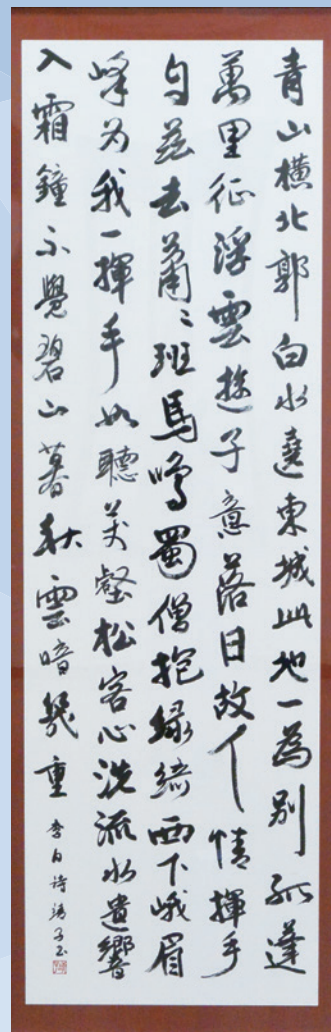 青山橫北郭白水遶東城此地一為別孤蓬
萬里征浮雲遊子意落日故人情揮手
自茲去蕭〻班馬鳴蜀僧抱綠綺西下峨眉
峰为我一揮手如聽萬壑松客心洗流水遺響
入霜鐘不覺碧山暮秋雲暗幾重 李白詩